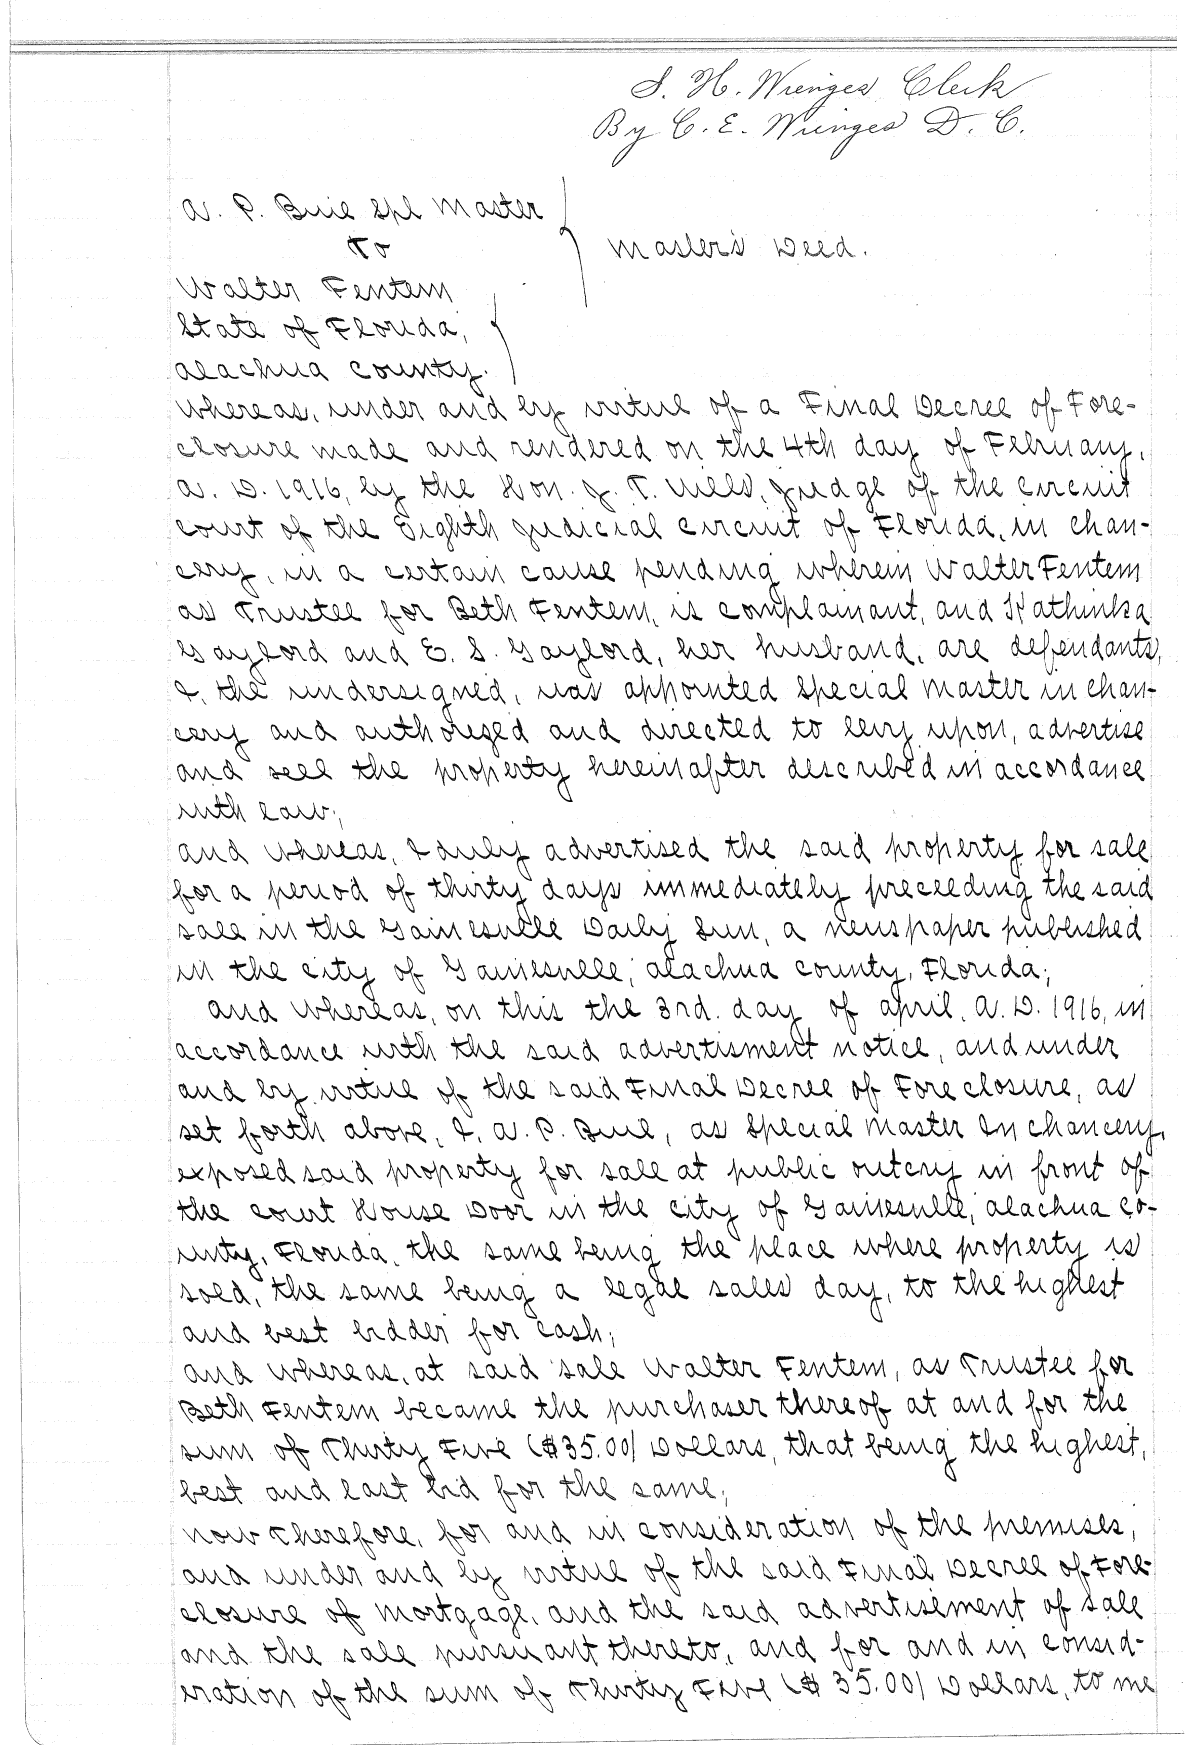 S. H. Wienges Clerk
By C. E. Wienges D. C.
A. P. Buie Spl Master
To
Master's Deed.
Walter Fentem
State of Florida,
Alachua County.
Whereas, under and by virtue of a Final Decree of Fore-
closure made and rendered on the 4th day of February,
A. D. 1916, by the Hon. J. T. Wills, Judge of the Circuit
Court of the Eighth Judicial Circuit of Florida, in Chan-
cery, in a certain cause pending wherein Walter Fentem
as Trustee for Beth Fentem, is complainant, and Kathinka
Gaylord and E. S. Gaylord, her husband, are defendants,
I, the undersigned, was appointed Special Master in Chan-
cery and authorized and directed to levy upon, advertise
and sell the property hereinafter described in accordance
with law;
And Whereas, I duly advertised the said property for sale
for a period of thirty days immediately preceeding the said
sale in the Gainesville Daily Sun, a newspaper published
in the City of Gainesville, Alachua County, Florida;
And Whereas, on this the 3rd. day of April, A. D. 1916, in
accordance with the said advertisment notice, and under
and by virtue of the said Final Decree of Foreclosure, as
set forth above, I, A. P. Buie, as Special Master In Chancery,
exposed said property for sale at public outcry in front of
the Court House Door in the City of Gainesville, Alachua Co-
unty, Florida, the same being the place where property is
sold, the same being a legal sales day, to the highest
and best bidder for cash;
And Whereas, at said sale Walter Fentem, as Trustee for
Beth Fentem became the purchaser thereof at and for the
sum of Thirty Five ($35.00) Dollars, that being the highest,
best and last bid for the same;
Now Therefore, for and in consideration of the premises,
and under and by virtue of the said Final Decree of Fore-
closure of mortgage, and the said advertisement of sale
and the sale pursuant thereto, and for and in consid-
eration of the sum of Thirty Five ($35.00) Dollars, to me